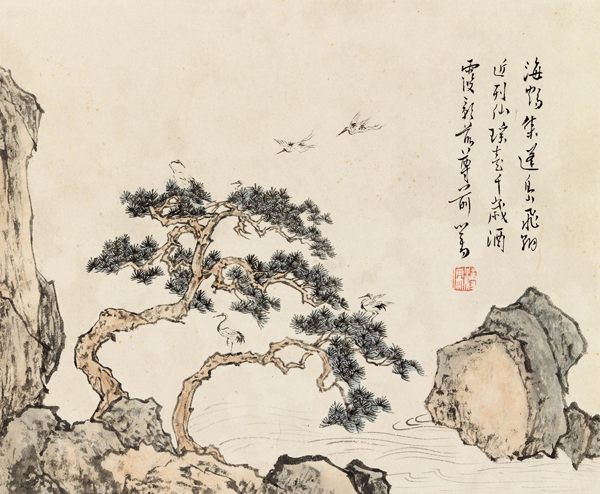 海鶴集蓬島飛翔
近列仙瑤壺千歲酒
霞影落尊前心畬